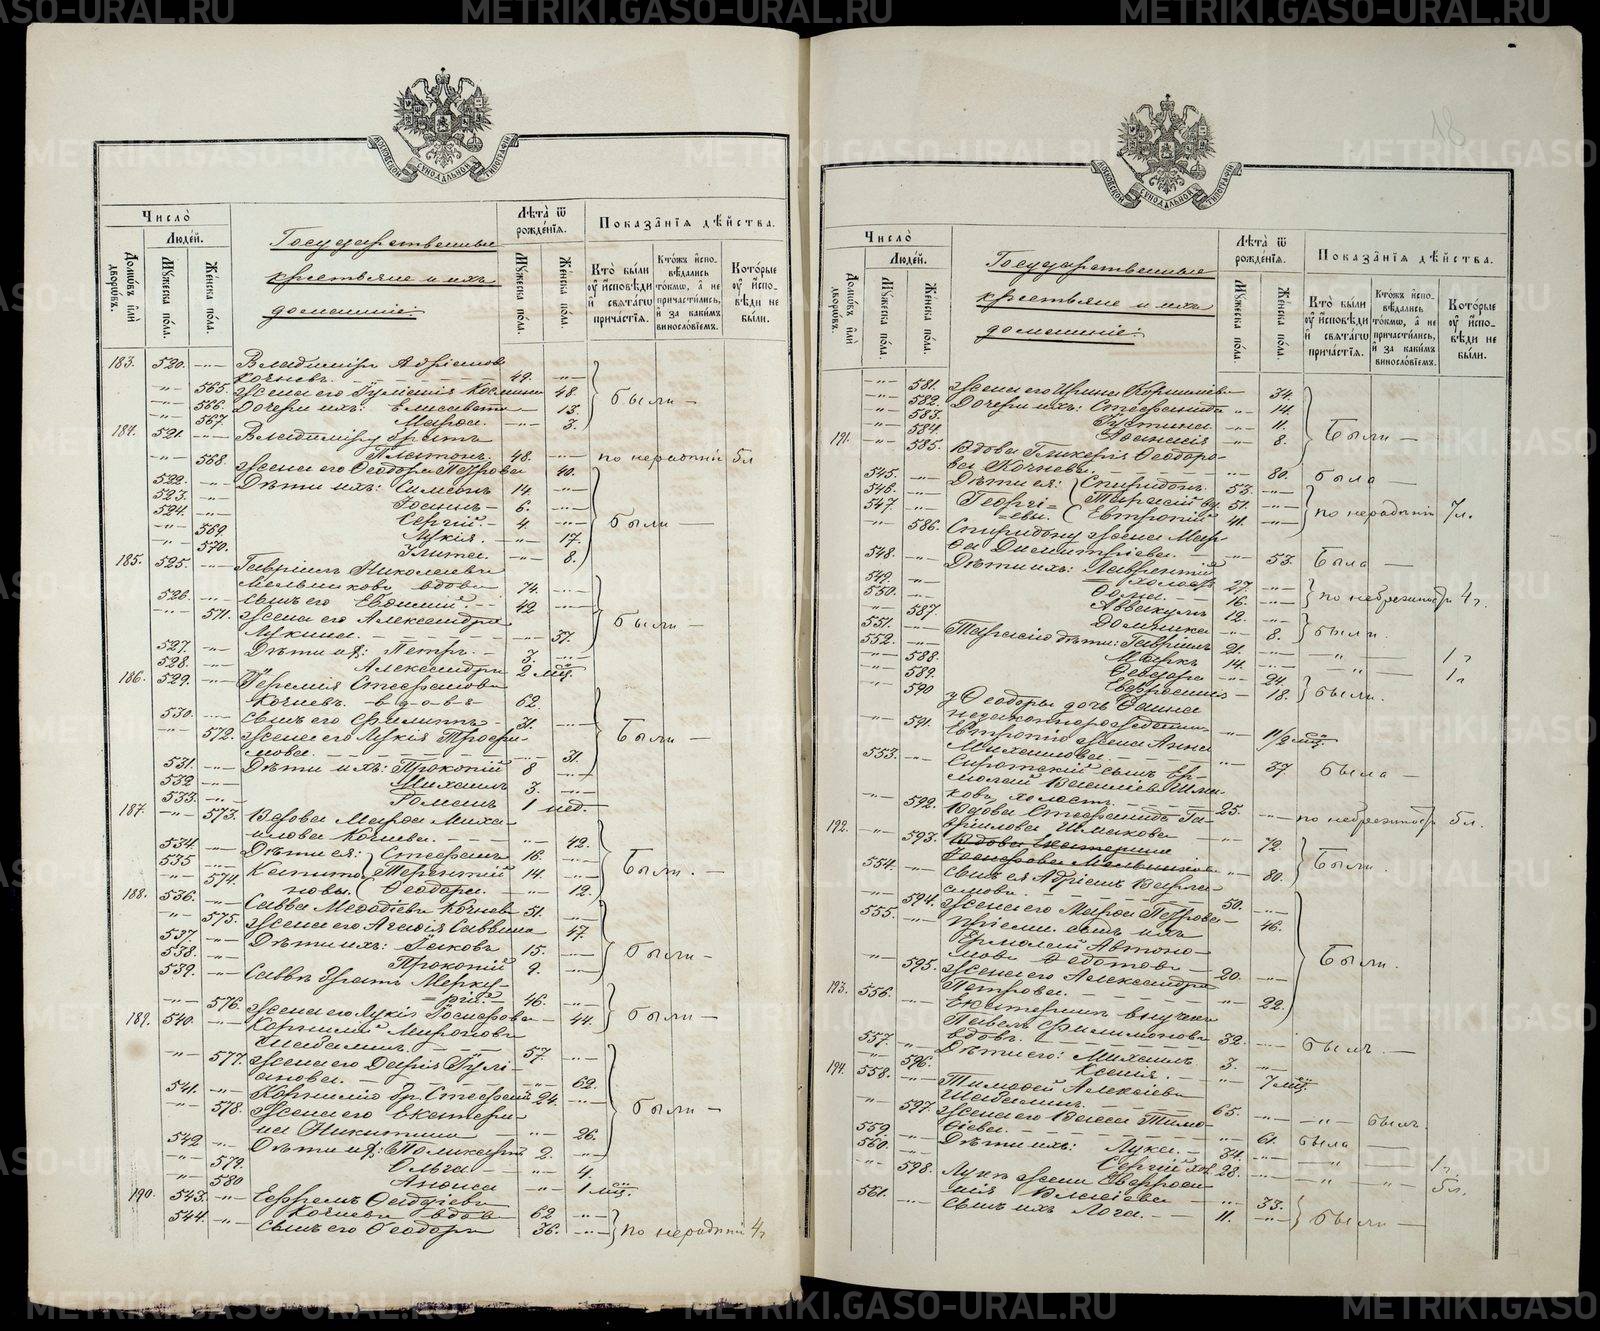 METRIKI.GASO-URAL.RU
МОСКОВСКОЙ СѴНОДАЛЬНОЙ ТИПОГРАФІИ
Число̀
Людей.
Домѡвъ илй дворѡвъ.
Мужеска пола.
Женска пола.
Государственные
крестьяне и ихъ
домашніе:
Лѣта̀ ѿ рожденїѧ.
Мужеска пола.
Женска пола.
Показанїѧ дѣйства.
Кто̀ были оу̓ исповѣди и свѧтагѡ причастїѧ.
Ктожъ исповѣдались токмѡ, а не причастились, и за какимъ винословїемъ.
Которые оу̓ исповѣди не были.
183. 520. -„- Владимиръ Адріановъ
Кочневъ. 49. -„-
-„- 565. Жена его Іуліанія Космина 48.
-„- 566. Дочери ихъ: Елисавета 13. были
-„- 567. Марѳа. -„- 3.
184. 521. -„- Владиміру братъ
Платонъ. 48. -„- по нерадѣнію 5л
-„- 568. Жена его Ѳеодора Петрова 40.
522. -„- Дѣти ихъ: Симеонъ 14. -„-
523. -„- Іоаннъ 6. -„-
524. -„- Сергій. 4. -„- были
-„- 569. Лукія. -„- 17.
-„- 570. Улита. -„- 8.
185. 525. -„- Гавріилъ Николаевъ
Мельниковъ вдовъ 74. -„-
526. -„- Сынъ его Евѳимій. 42 -„-
-„- 571. Жена его Александра
Лукина. -„- 37. были
527. -„- Дѣти ихъ: Петръ. 3. -„-
528. -„- Александръ 2 мѣс.
186. 529. -„- Іеремія Стефановъ
Кочневъ. вдовъ 62.
530. Сынъ его Филиппъ 31. -„-
-„- 572. Жена его Лукія Трофимова. -„- 31. Были
531. -„- Дѣти ихъ: Прокопій 8 -„-
532 -„- Михаилъ 3. -„-
533. -„- Романъ 1 нед.
187. -„- 573. Вдова Марѳа Михаилова Кочнева. -„- 42.
534. -„- Дѣти ея: Стефанъ 16. -„-
535 -„- Терентій 14. -„- Были.
-„- 574. Ѳеодора. -„- 12.
188. 536. -„- Савва Меѳодіевъ Кочневъ 51. -„-
-„- 575. Жена его Агаѳія Саввина 47.
537. -„- Дѣти ихъ: Іаковъ 15. -„- были
538. -„- Прокопій 9. -„-
539. -„- Саввѣ братъ Меркурій. 46. -„-
-„- 576. Жена его Лукія Іосифова 44. были
189. 540. -„- Корнилій Мироновъ
Шабалинъ. 57. -„-
-„- 577. Жена его Дарія Іуліанова. -„- 62.
541. -„- Корнилію бр. Стефанъ 24. -„-
-„- 578. Жена его Екатерина Никитина -„- 26. были
542 -„- Дѣти их: Поликарпъ 2. -„-
-„- 579. Ольга -„- 4.
-„- 580 Анѳиса -„- 1 мѣс.
190. 543. -„- Ефремъ
Кочневъ вдовъ 62 -„-
544. -„- Сынъ его Ѳеодоръ 36. -„- по нерадѣнію 4г
18
МОСКОВСКОЙ СѴНОДАЛЬНОЙ ТИПОГРАФІИ
Число̀
Людей.
Домѡвъ илй дворѡвъ.
Мужеска пола.
Женска пола.
Государственные
крестьяне и ихъ
домашніе:
Лѣта̀ ѿ рожденїѧ.
Мужеска пола.
Женска пола.
Показанїѧ дѣйства.
Кто̀ были оу̓ исповѣди и свѧтагѡ причастїѧ.
Ктожъ исповѣдались токмѡ, а не причастились, и за какимъ винословїемъ.
Которые оу̓ исповѣди не были.
-„- 581. Жена его Ирина Корнилева 34.
-„- 582. Дочери ихъ: Стефанида -„- 14.
-„- 583. Іустина -„- 11. Были
-„- 584. Аѳанасія -„- 8.
191. -„- 585. Вдова Гликерія Ѳеодорова Кочнева. -„- 80. была
545. -„- Дѣти ея: Спиридонъ. 53. -„-
546. -„- Тарасій вд. 51. -„- по нерадѣнію 7л.
547. -„- Георгіевы. Евтропій 41. -„-
-„- 586. Спиридону жена Марѳа Димитріева. -„- 53. Была
548. -„- Дѣти ихъ: Лаврентій
холостъ 27. -„- по небрежности 4г.
549. -„- Ѳома. 16. -„-
550. -„- Аввакумъ 12.
-„- 587. Домника -„- 8. были.
551. -„- Тарасію дѣти: Гавріилъ 21. -„- 1г
552. -„- Маркъ 14. -„- 1г
-„- 588. Ѳеодора -„- 24.
-„- 589. Евфросинія 18. были.
-„- 590 у Ѳеодоры дочь Фаина
незаконнорожденн. -„- 11/2 мѣс.
-„- 591. Евтропію жена Анна
Михаилова. -„- 37 была
553. -„- Сиротскій сынъ Ермолай Василіевъ Шмаковъ, холостъ. 25. -„- по небрежности 5л.
192. -„- 592. Вдова Стефанида Гавриилова Шмакова -„- 72.
-„- 593. Вдова Екатерина
Іосифова Мельникова -„- 80. Были.
554. -„- Сынъ ея Адріанъ 50. -„-
-„- 594. Жена его Марѳа Петрова 46.
555. -„- Пріемн. сынъ ихъ
Ермолай Автономовъ Ѳедотовъ 20. -„- Были.
-„- 595. Жена его Александра
Петрова. -„- 22.
193. 556. -„- Екатерины внучекъ
Павелъ Филимоновъ
вдовъ. 32. были.
557. -„- Дѣти его: Михаилъ 3. -„-
-„- 596. Ксенія. -„- 7 мѣс.
194. 558. -„- Тимоѳей Алексіевъ
Шабалинъ. 65. -„- -„- былъ
-„- 597. Жена его Васса Тимоѳіева. -„- 61. была
559 -„- Дѣти ихъ: Лука. 34. -„- -„- 1г.
560. -„- Сергій хол. 28. -„- -„- -„- 5л.
-„- 598. Лукѣ жена Евфросинія -„- 33. были
561. -„- Сынъ ихъ 11. -„-